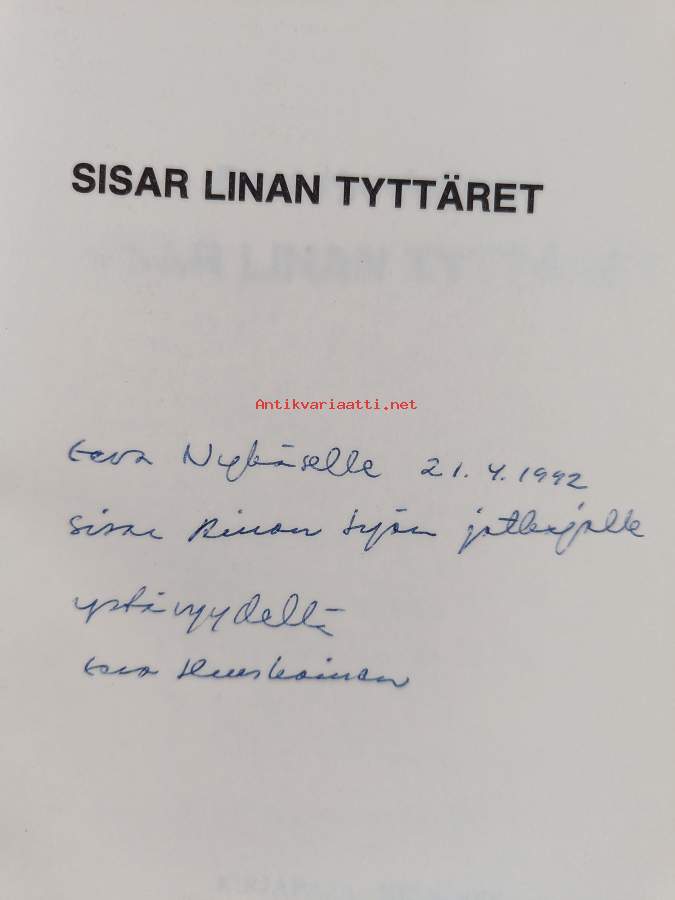 SISAR LINAN TYTTÄRET
Antikvariaatti.net
Eeva Nykäselle 21.4.1992
Sisar Linan työn jatkajalle
ystävyydellä
Eeva